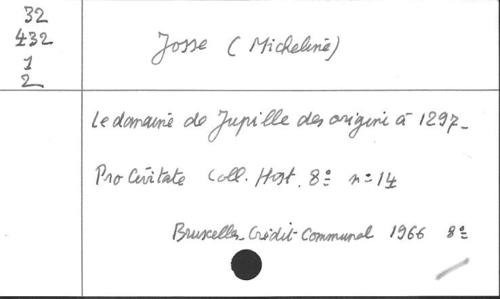 32
432
1
2
Josse (Micheline)
Le domaine de Jupille des origini à 1297_
Pro Civitate Coll. Hist. 8° n° 14
Bruxelles_Crédit Communal 1966 8°